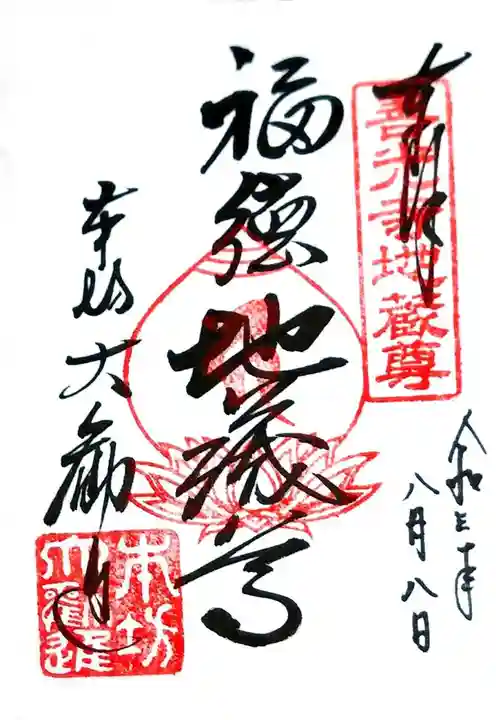 奉拝
善光寺地蔵尊
福徳地蔵尊
令和三年
八月八日
本坊大勧進
本坊